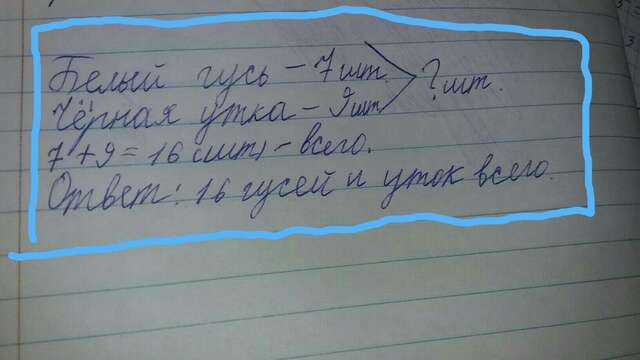 Белый гусь – 7 шт. > ? шт.
Чёрная утка – 9 шт
7 + 9 = 16 (шт) – всего.
Ответ: 16 гусей и уток всего.